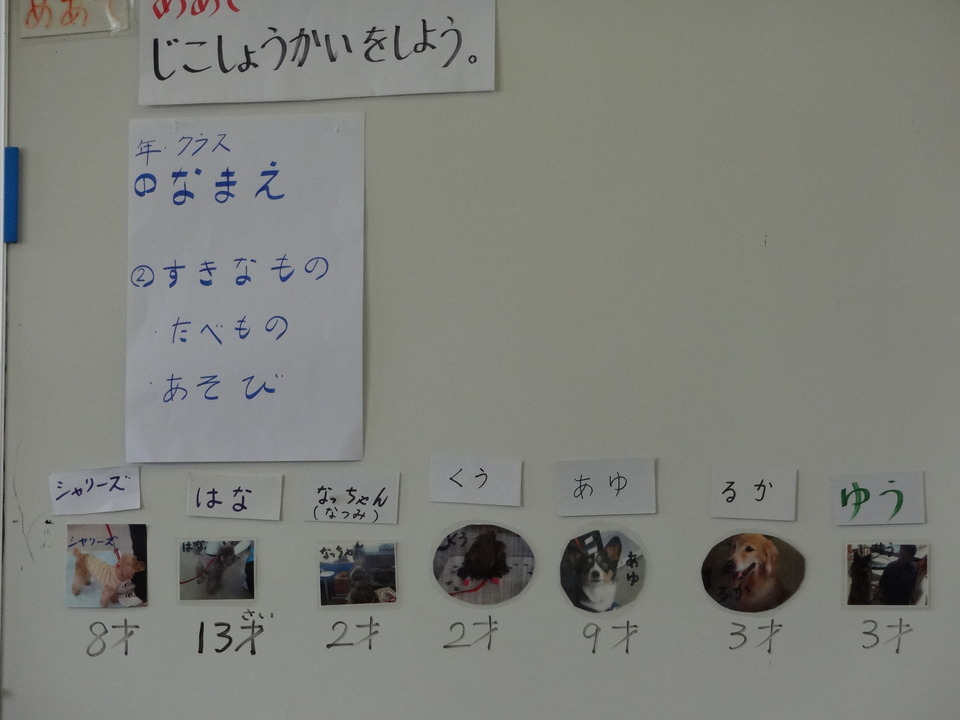 めあて
めあて
じこしょうかいをしよう。
年・クラス
①なまえ
②すきなもの
・たべもの
・あそび
シャリーズ
はな
なっちゃん
(なつみ)
くう
あゆ
るか
ゆう
シャリーズ
はな
なっちゃん
くう
あゆ
るか
ゆう
8才
さい
13才
2才
2才
9才
3才
3才